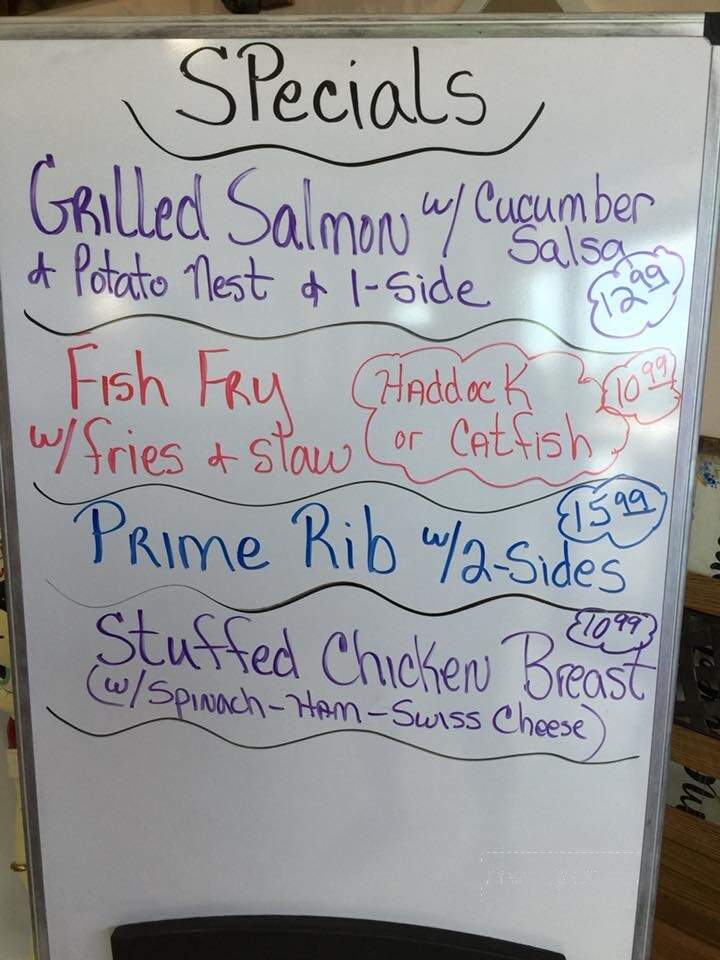 SPecials
Grilled Salmon w/ Cucumber Salsa
& Potato Nest & 1-Side 12.99
Fish Fry Haddock 10.99
w/ fries & slaw or Catfish
15.99
Prime Rib w/ 2-Sides
10.99
Stuffed Chicken Breast
(w/ Spinach-Ham-Swiss Cheese)